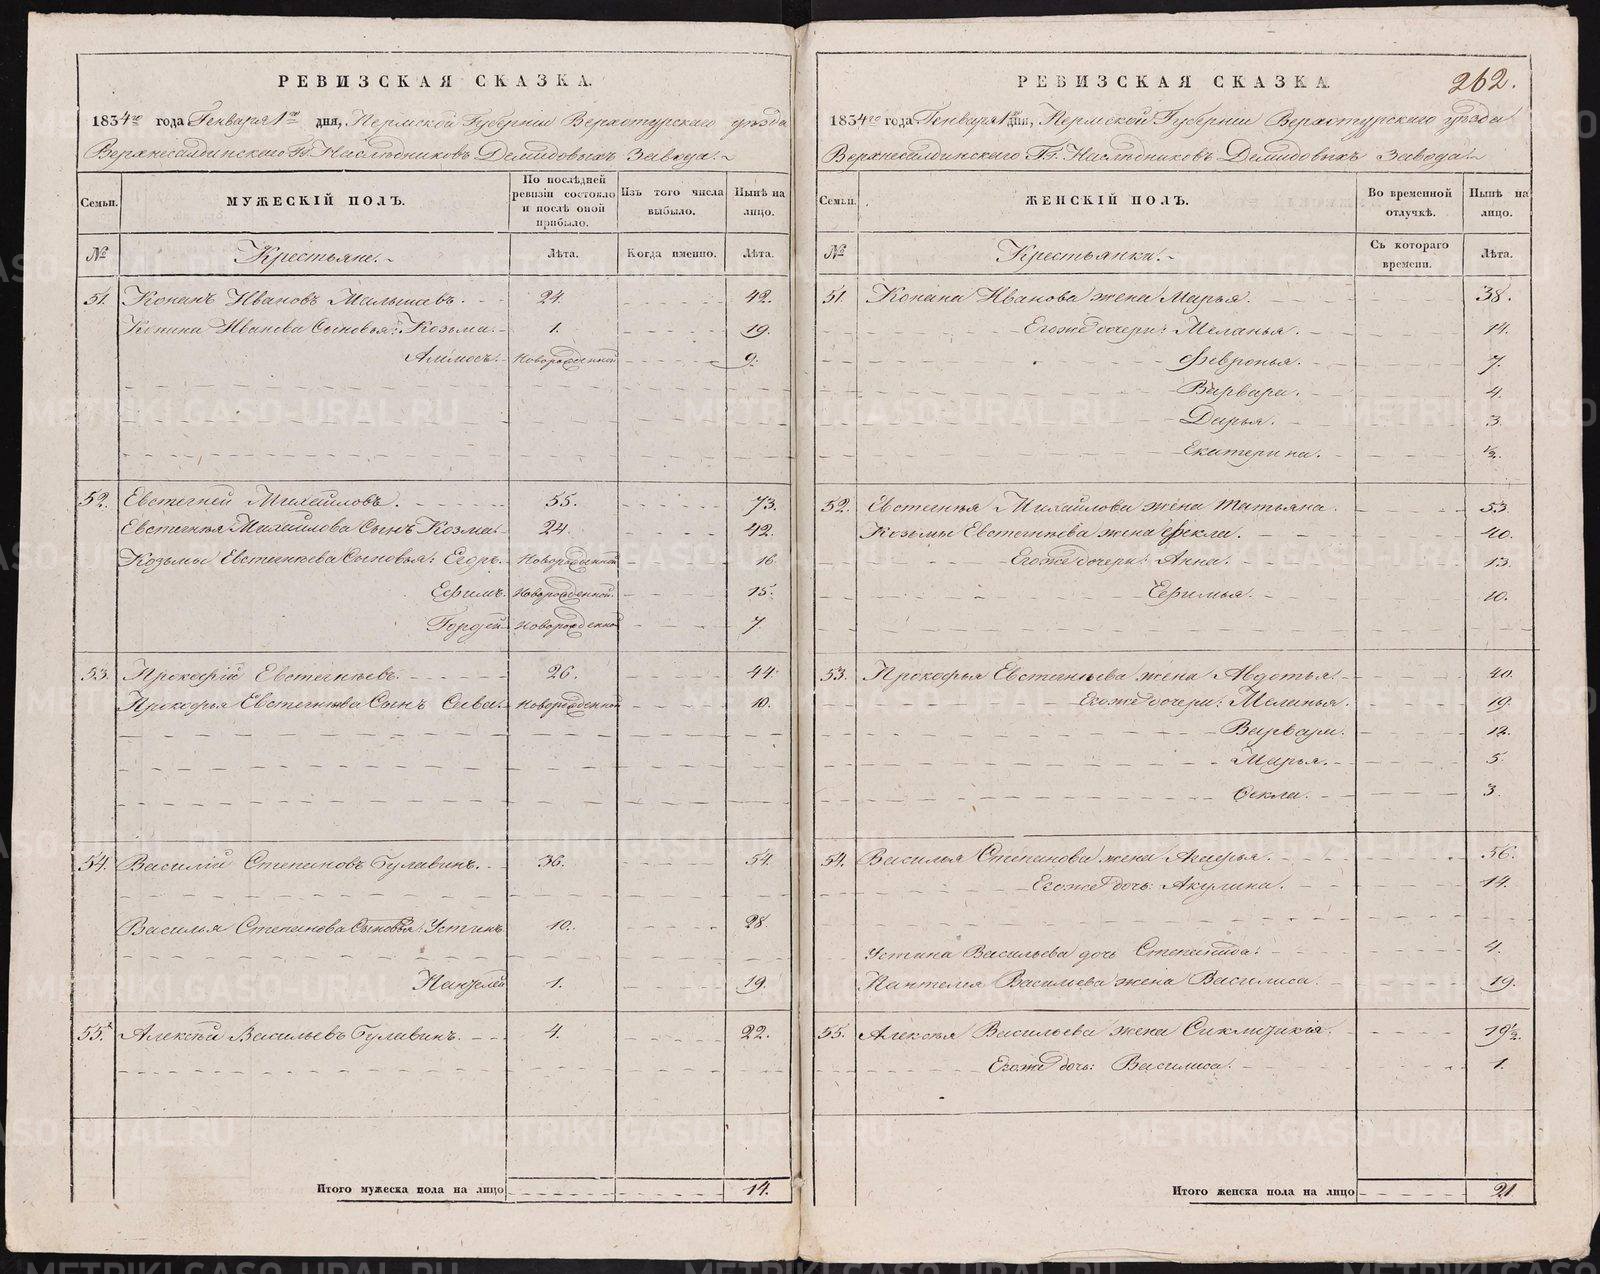 РЕВИЗСКАЯ СКАЗКА.
1834го года Генваря 1го дня, Пермской Губернии Верхотурскаго уѣзда
Верхнесалдинскаго Гг. Наслѣдниковъ Демидовыхъ Завода.
Семьи. МУЖЕСКІЙ ПОЛЪ. По послѣдней ревизіи состояло и послѣ оной прибыло. Изъ того числа выбыло. Нынѣ на лицо.
№ Крестьяне. Лѣта. Когда именно. Лѣта.
51. Конанъ Ивановъ Малышевъ. 24. 42.
Конана Иванова Сыновья: Козьма. 1. 19.
Новорожденной 9.
52. Евстегней Михайловъ. 55. 73.
Евстегнѣя Михайлова Сынъ Козма. 24. 42.
Козьмы Евстегнѣева Сыновья: Егоръ. Новорожденной 16.
Ефимъ. Новорожденной. 15.
Гордей Новорожденной 7.
53. Прокофій Евстегнѣевъ. 26. 44.
Прокофья Евстегнѣева Сынъ Сава. Новорожденной 10.
54. Василій Степановъ Булавинъ. 36. 54.
Василья Степанова Сыновья: Устинъ 10. 28.
Пантелей 1. 19.
55. Алексѣй Васильевъ Булавинъ. 4. 22.
Итого мужеска пола на лицо 14.
РЕВИЗСКАЯ СКАЗКА. 262.
1834го года Генваря 1го дня, Пермской Губернии Верхотурскаго уѣзда
Верхнесалдинскаго Гг. Наслѣдниковъ Демидовыхъ Завода.
Семьи. ЖЕНСКІЙ ПОЛЪ. Во временной отлучкѣ. Нынѣ на лицо.
№ Крестьянки. Съ котораго времени. Лѣта.
51. Конана Иванова жена Марья. 38.
Егоже дочери: Меланья. 14.
Февронья. 7.
Варвара. 4.
Дарья. 3.
Екатерина. ½.
52. Евстегнѣя Михайлова жена Татьяна. 53.
Козьмы Евстегнѣева жена Фекла. 40.
Егоже дочери: Анна. 13.
Ефимья. 10.
53. Прокофья Евстегнѣева жена Авдотья. 40.
Егоже дочери: Меланья. 19.
Варвара. 12.
Марья. 5.
Фекла. 3.
54. Василья Степанова жена Агафья. 56.
Егоже дочь: Акулина. 14.
Устина Васильева дочь Степанида. 4.
Пантелея Васильева жена Василиса. 19.
55. Алексѣя Васильева жена 19½.
Егоже дочь: Василиса. 1.
Итого женска пола на лицо 21
METRIKI.GASO-URAL.RU